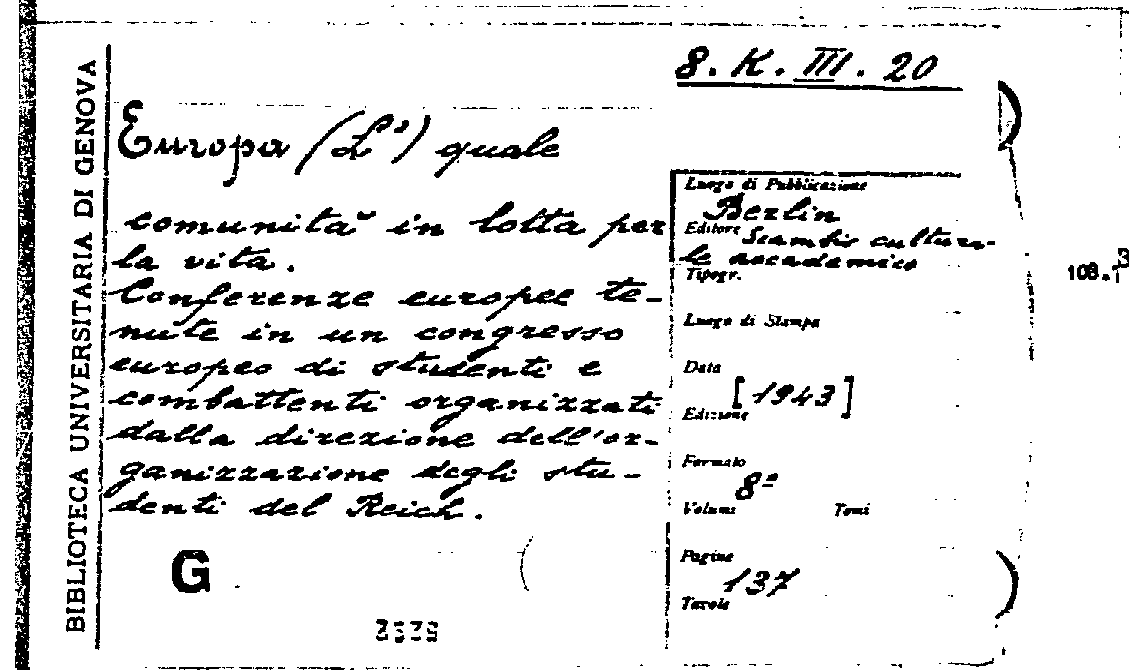 BIBLIOTECA UNIVERSITARIA DI GENOVA
8. K. III. 20
Europa (L') quale
comunità in lotta per
la vita.
Conferenze europee te-
nute in un congresso
europeo di studenti e
combattenti organizzati
dalla direzione dell'or-
ganizzazione degli stu-
denti del Reich.
G
Luogo di Pubblicazione
Berlin
Editore Scambio cultura-
le accademico
Tipogr.
Luogo di Stampa
Data
[1943]
Edizione
Formato
8°
Volumi Tomi
Pagine
137
Tavole
108.